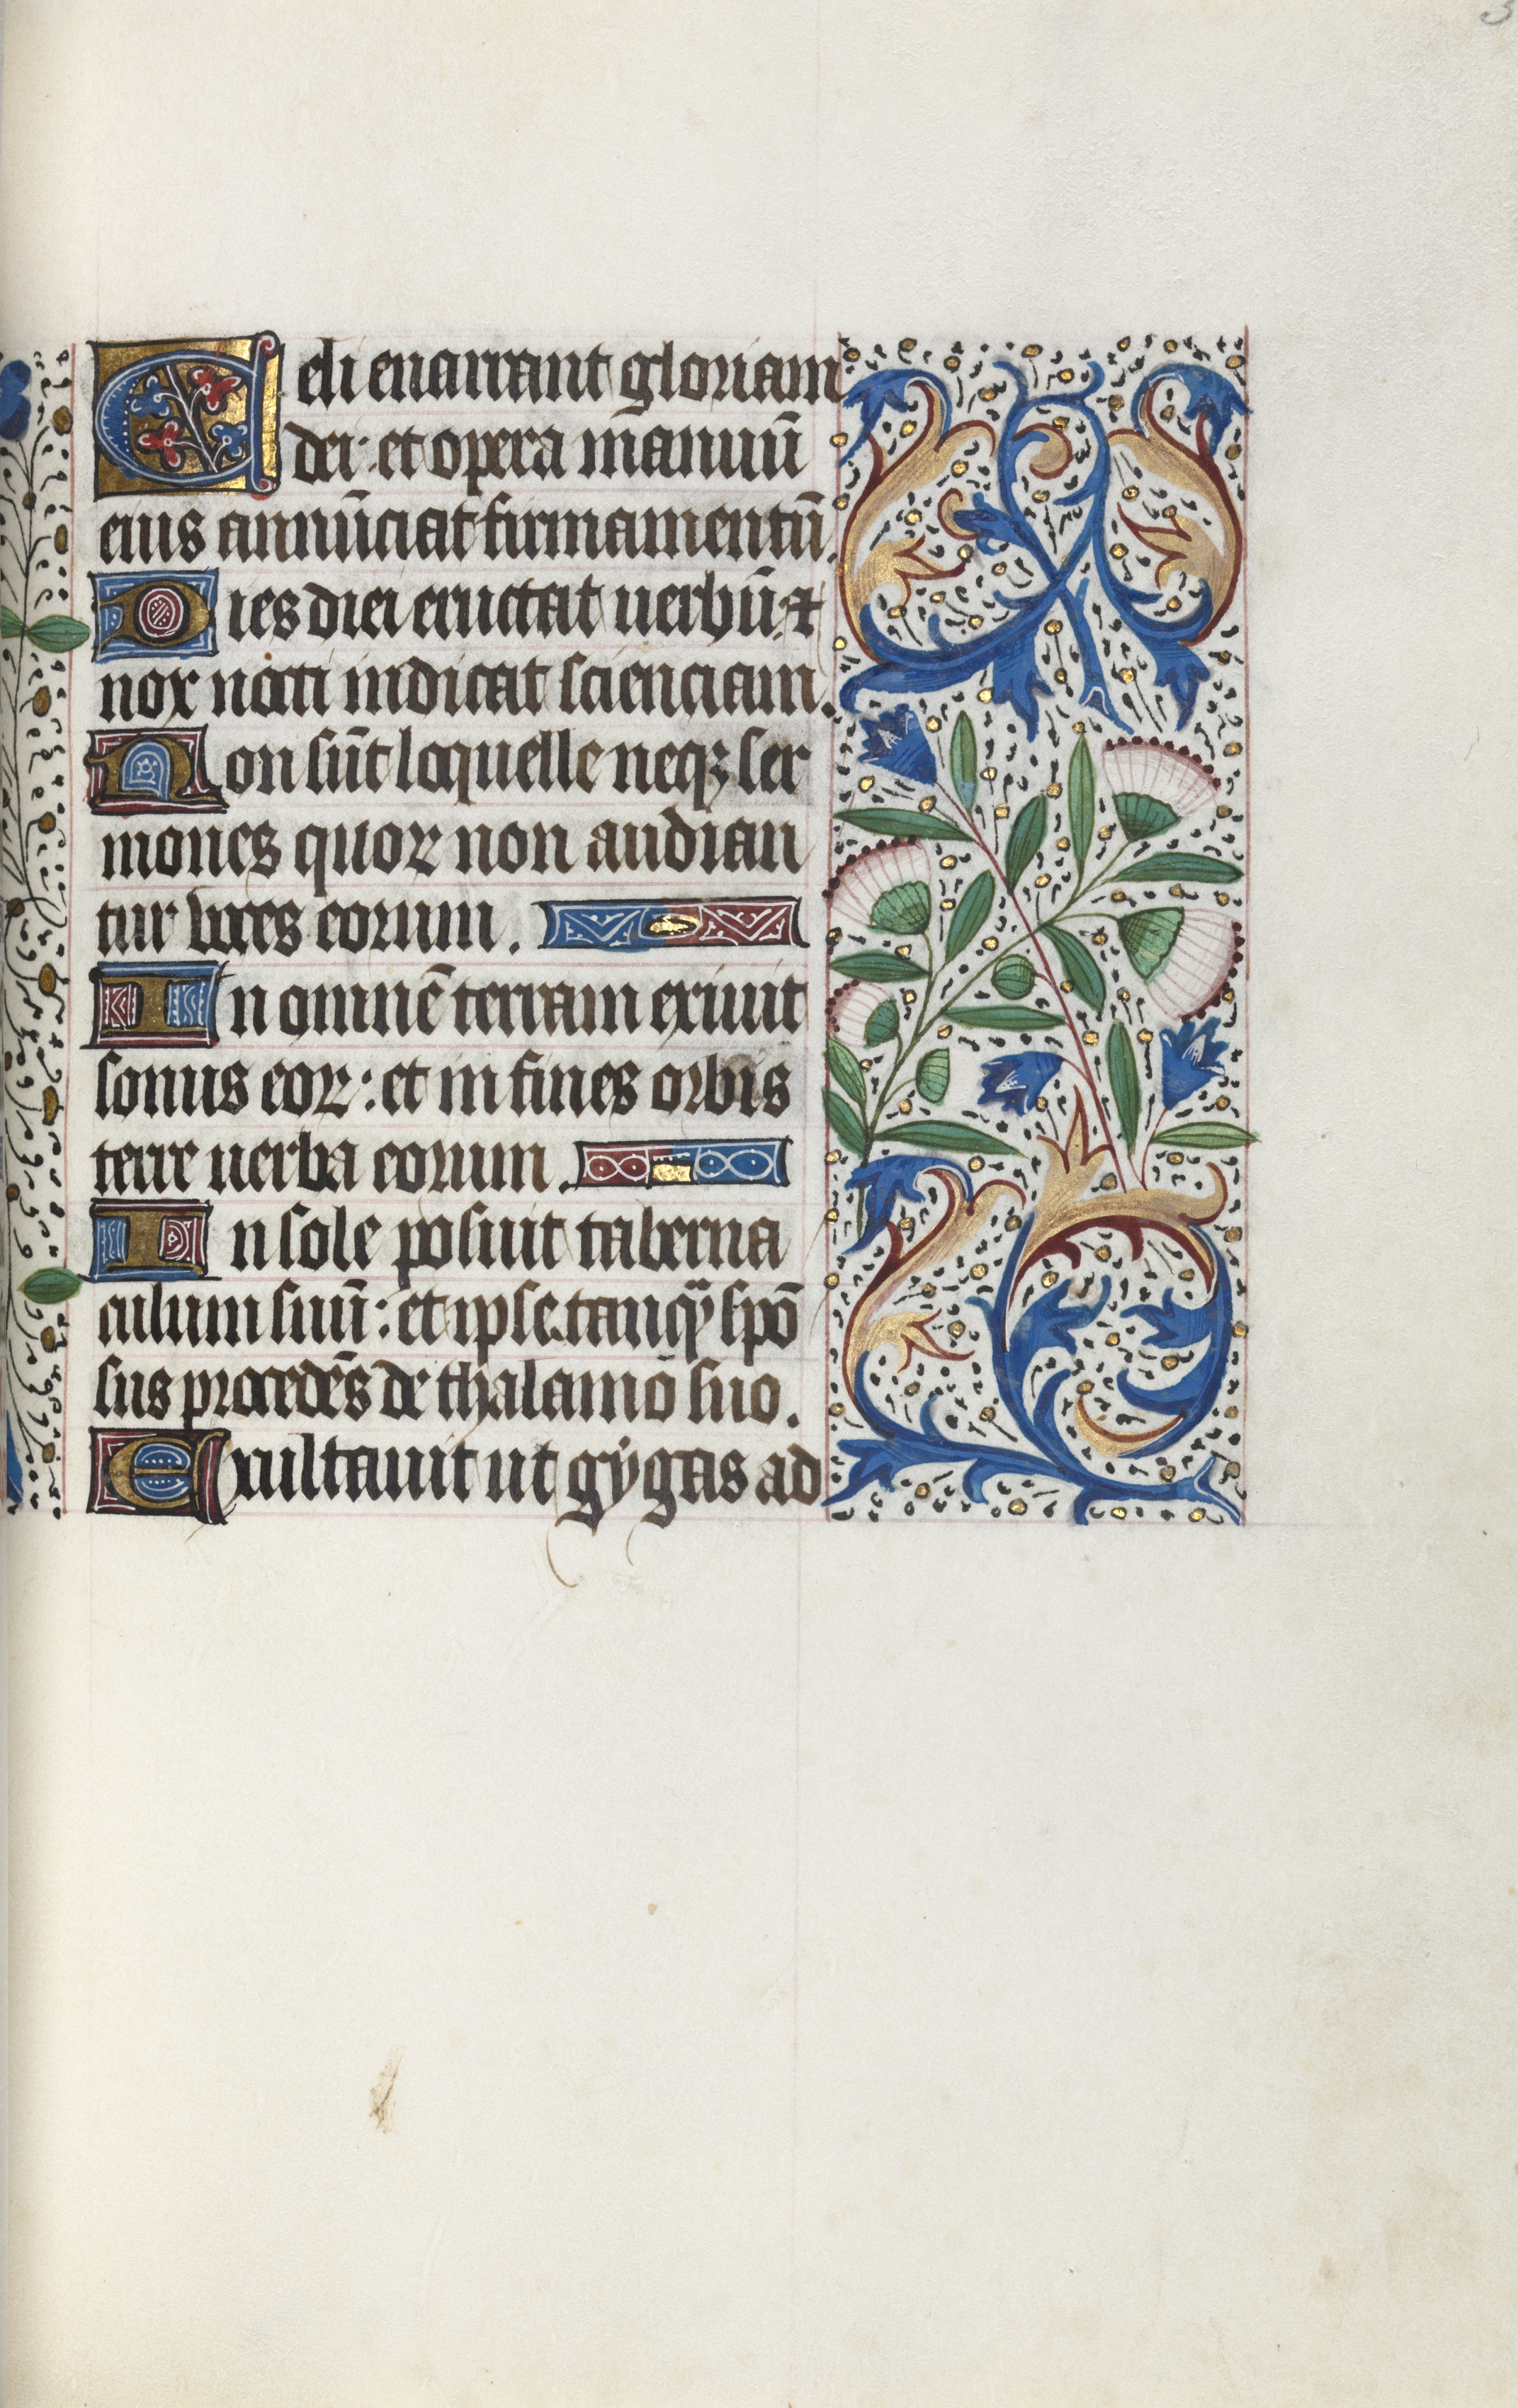 3
Celi enarrant gloriam
dei: et opera mãnuũ
eius annũciat firmamentũ.
Dies diei eructat uerbũ: ⁊
nox nocti indicat scienciam.
Non sũt loquelle neqꝫ ser
mones quoꝝ non audian
tur voces eorum.
In omnẽ terram exiuit
sonus eoꝝ: et in fines orbis
terre uerba eorum.
In sole posuit taberna
culum suũ: et ipse tanqᷓ spõ
sus procedẽs de thalamo suo.
Exultauit ut gẏgas ad